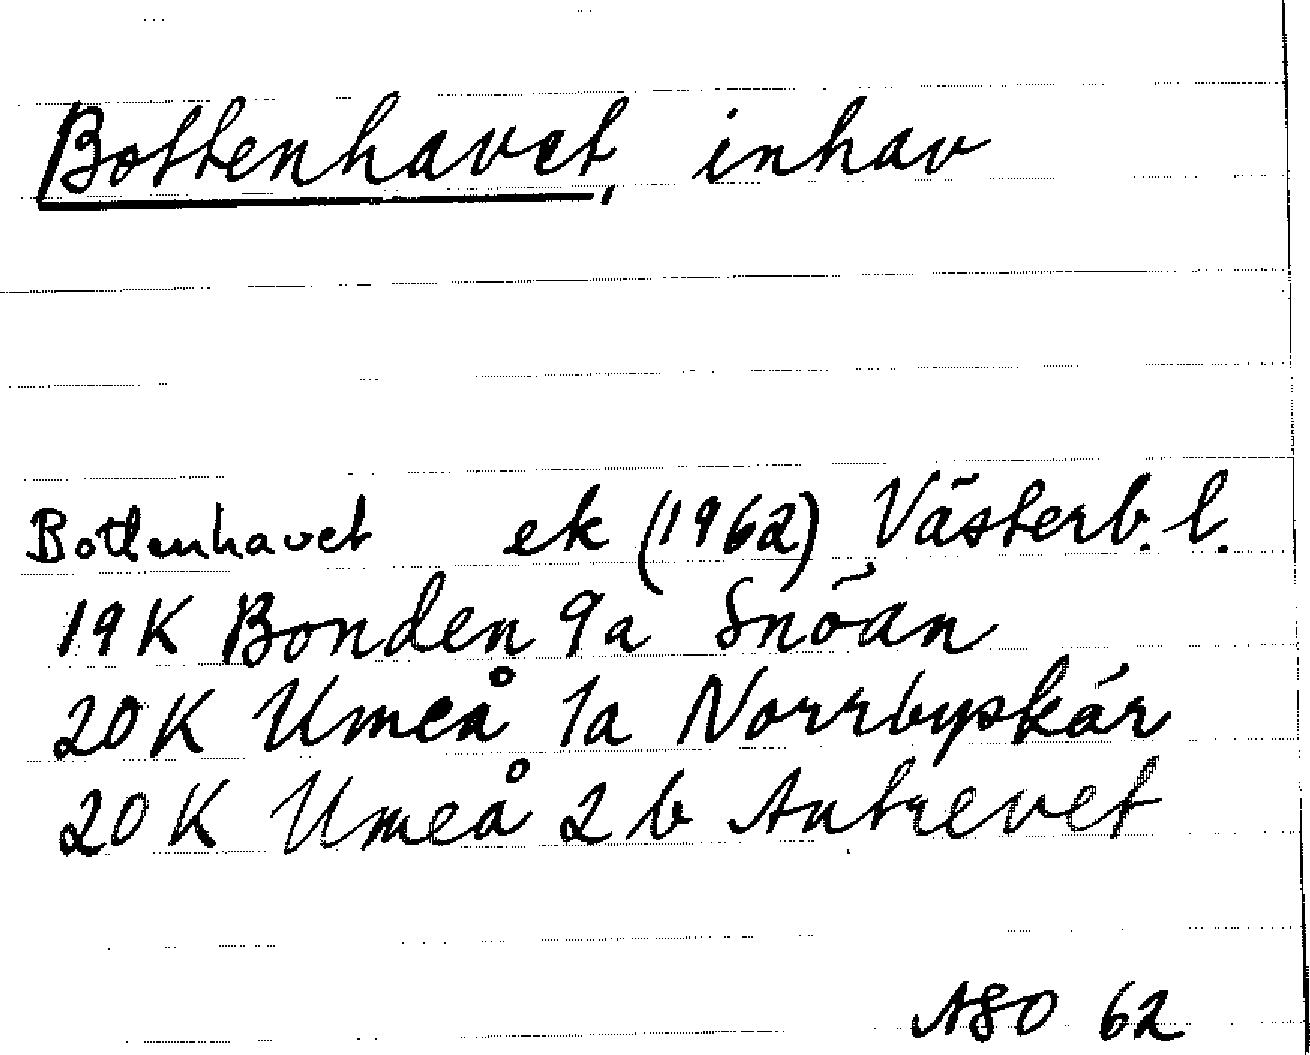 Bottenhavet, inhav
Bottenhavet ek (1962) Västerb. l.
19K Bonden 9a Snöan
20K Umeå 1a Norrbyskär
20K Umeå 2b Autrevet
ASO 62